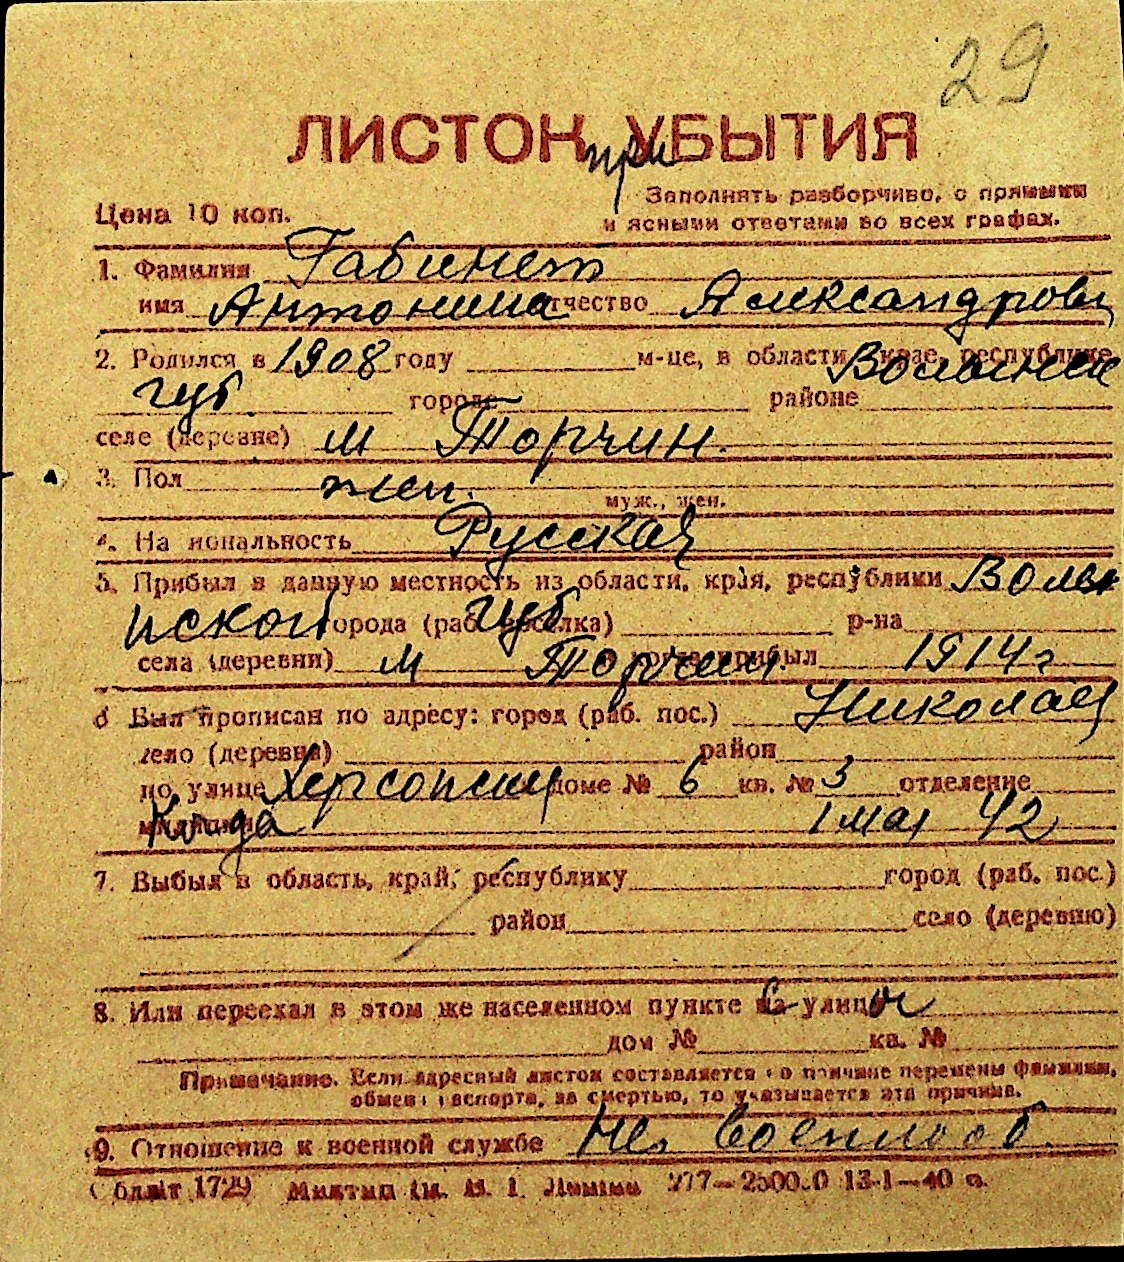 29
ЛИСТОК УБЫТИЯ
при
Заполнять разборчиво, с прямыми
Цена 10 коп.
и ясными ответами во всех графах.
1. Фамилия Габинет
имя Антонина отчество Александровн
2. Родился в 1908 году м-це, в области, крае, республике Волынск
губ. городе районе
селе (деревне) м Торчин.
3. Пол жен.
муж., жен.
4. Национальность Русская
5. Прибыл в данную местность из области, края, республики Волы
нской губ города (раб. поселка) р-на
села (деревни) м Торчин. когда прибыл 1914 г
6 Был прописан по адресу: город (раб. пос.) Николаев
село (деревня) район
по улице Херсонская доме № 6 кв. № 3 отделение
милиции Когда 1 мая 42
7. Выбыл в область, край, республику город (раб. пос.)
район село (деревню)
8. Или переехал в этом же населенном пункте на улицу
дом № кв. №
Примечание. Если адресный листок составляется по причине перемены фамилии,
обмена паспорта, за смертью, то указывается эта причина.
9. Отношение к военной службе Не военнооб.
Облит 1729 277—2500.0 13-1—40 г.